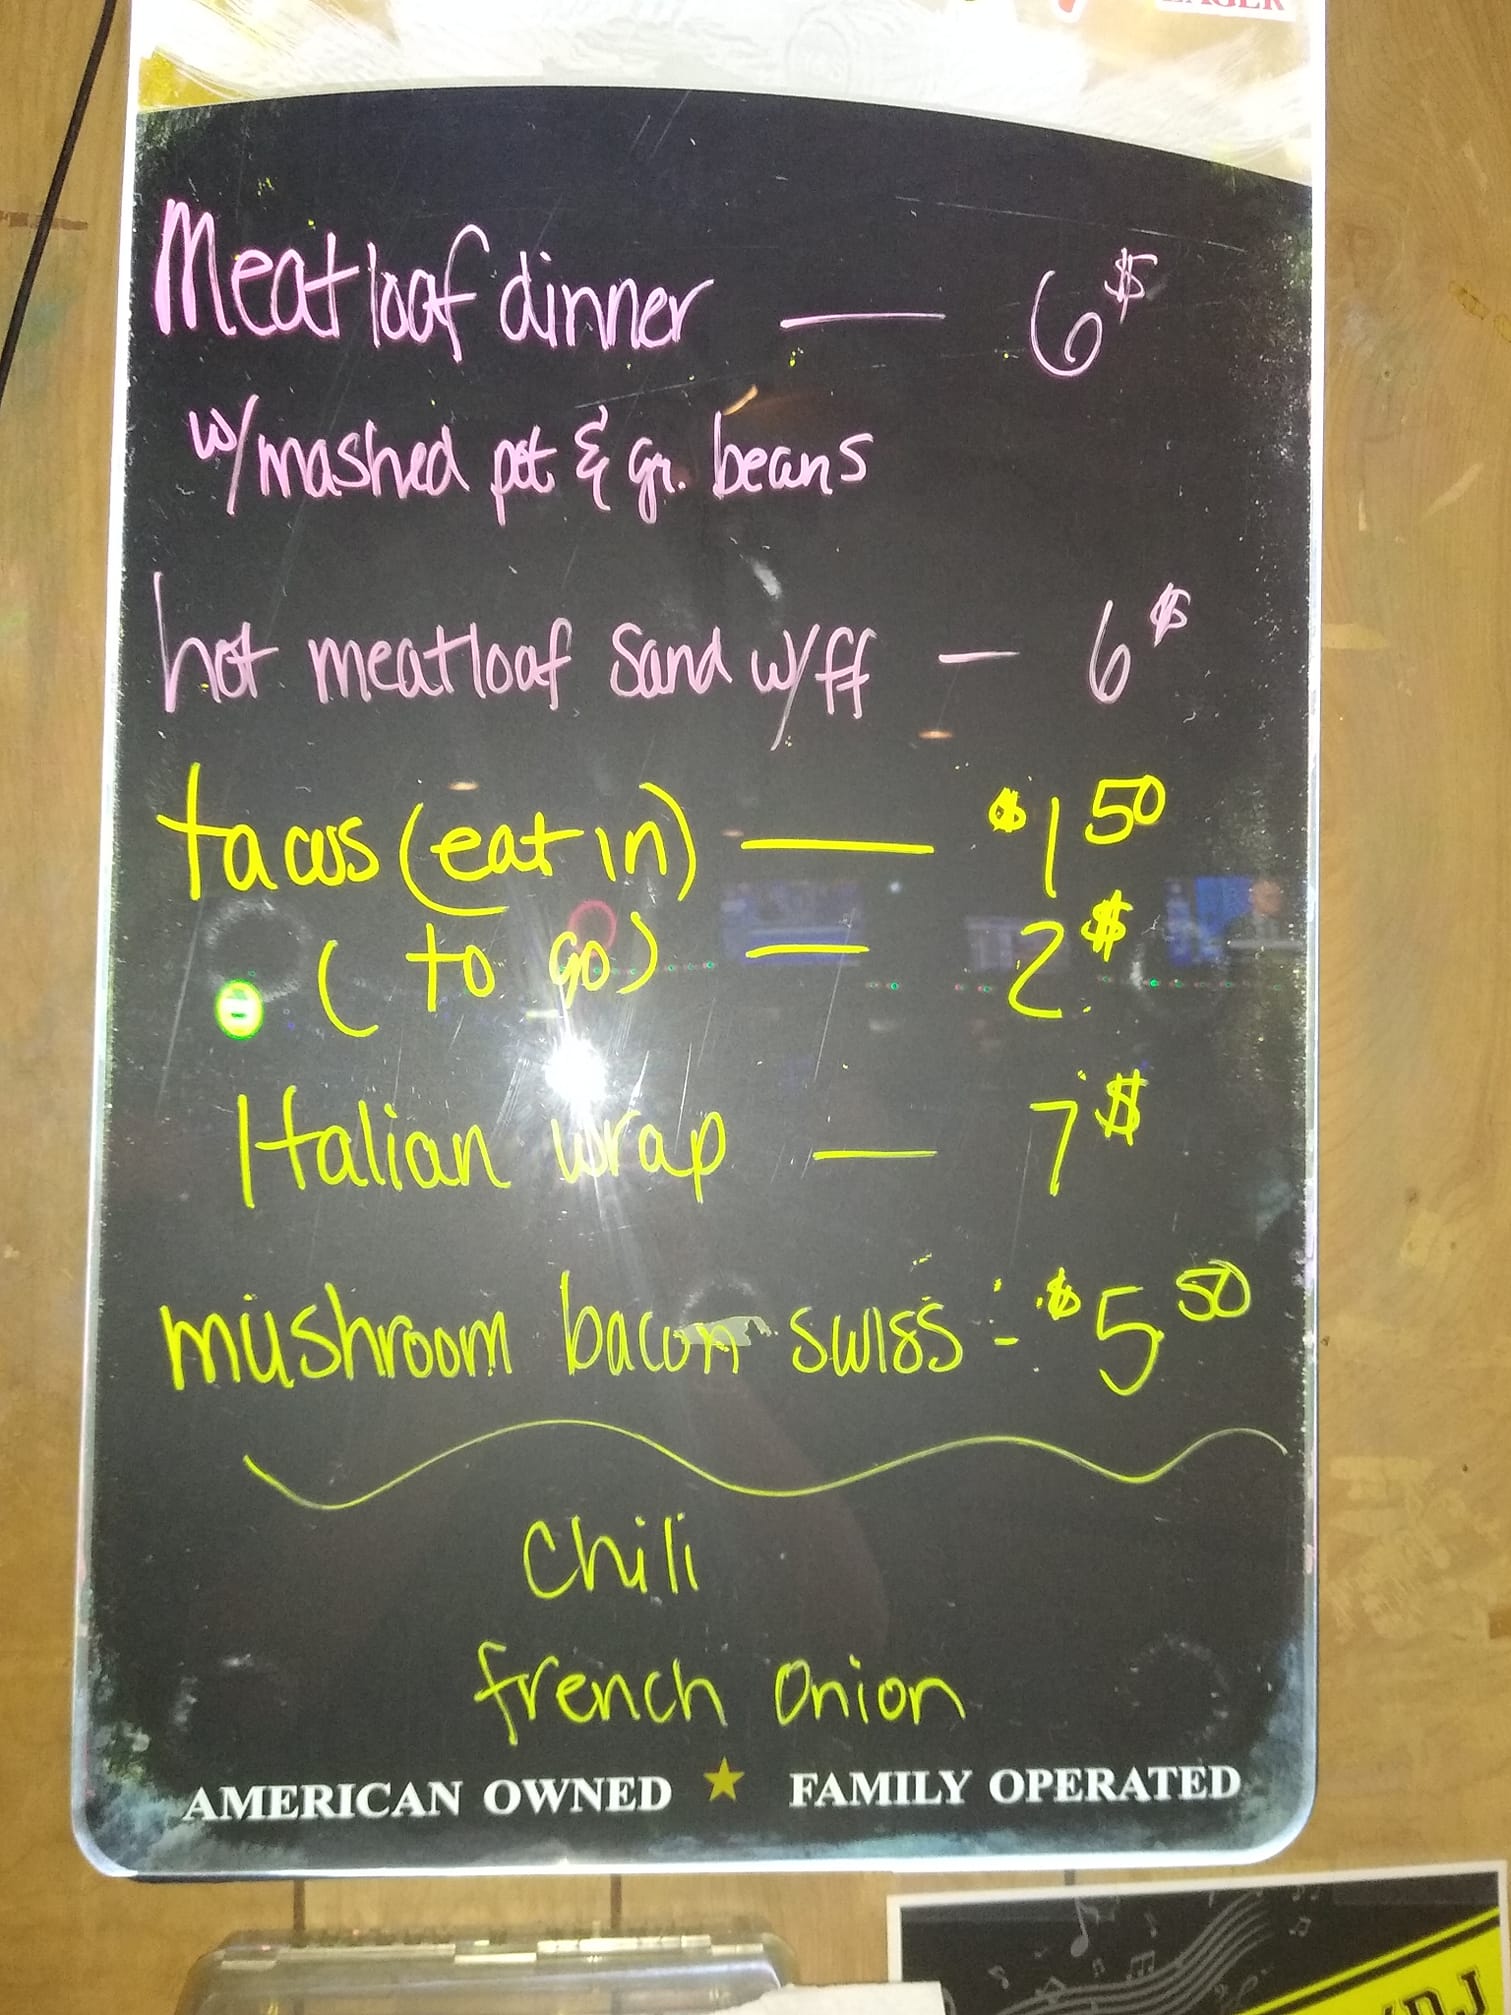 LAGER
Meatloaf dinner — 6$
w/mashed pot & gr. beans
hot meatloaf sand w/ff — 6$
tacos (eat in) — $1 50
( to go) — 2$
Italian wrap — 7$
mushroom bacon swiss - $5 50
Chili
french onion
AMERICAN OWNED ★ FAMILY OPERATED
DJ